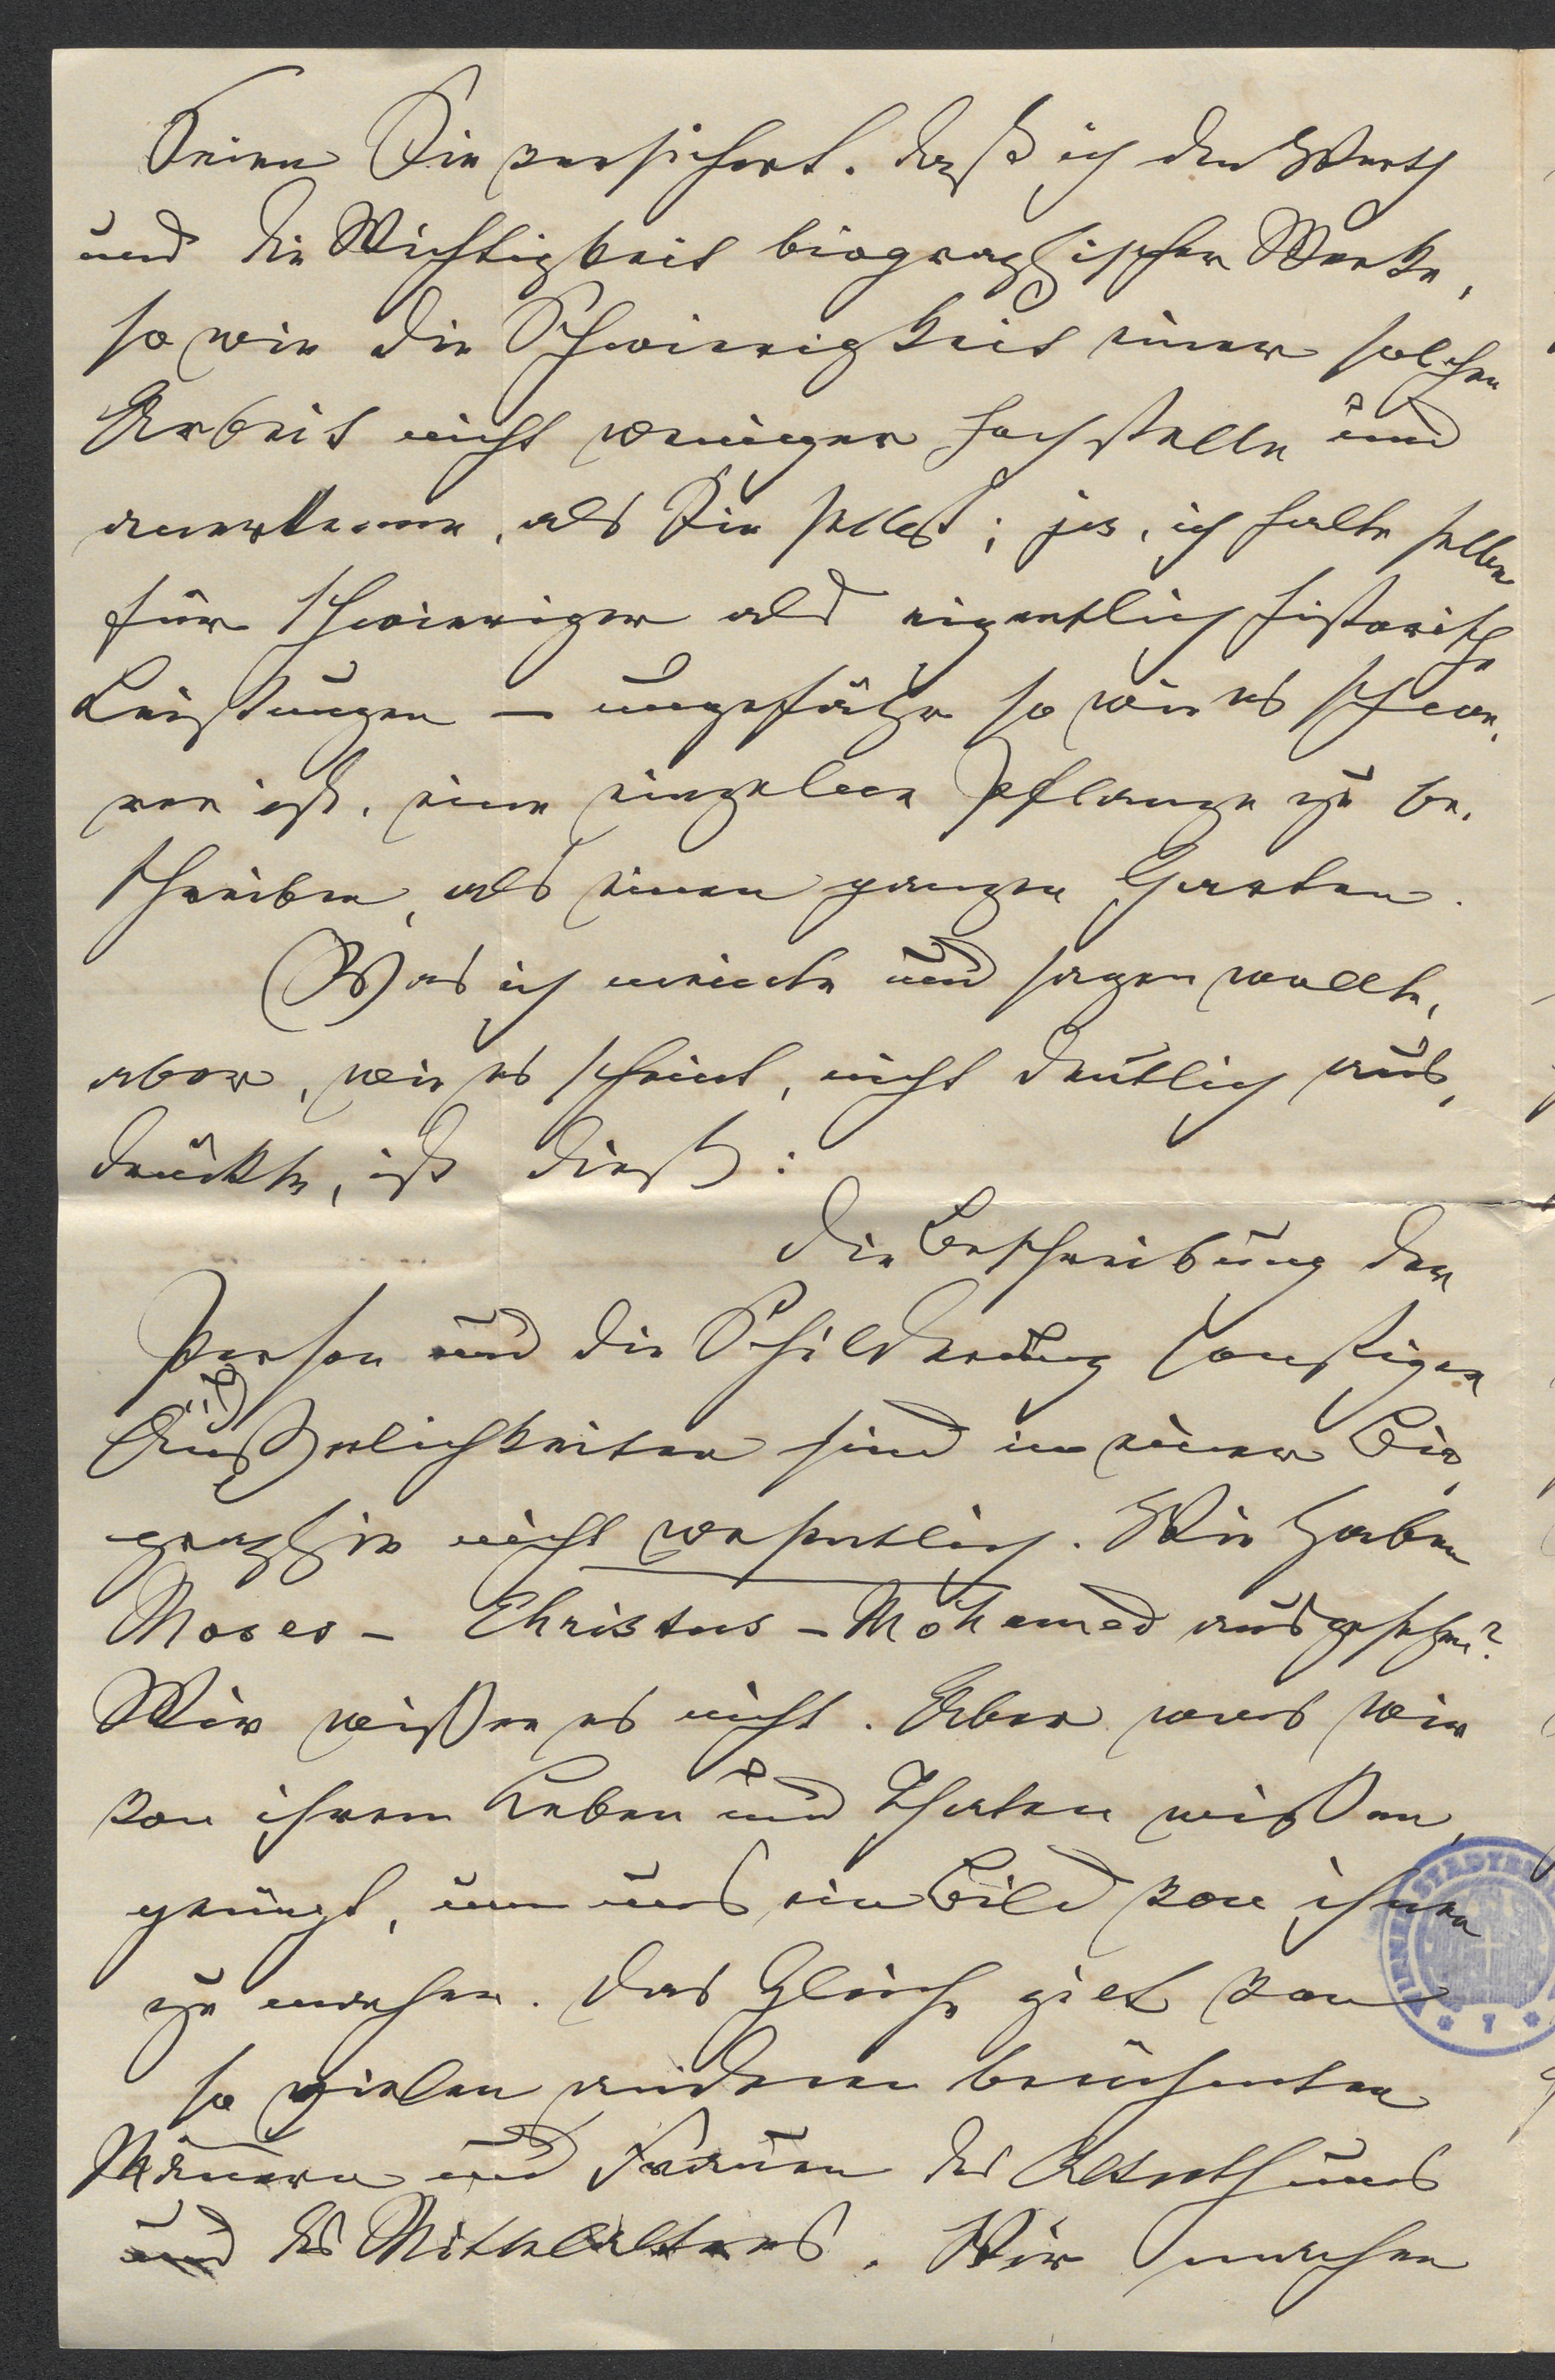 Seien Sie versichert, daß ich den Werth
und die Wichtigkeit biographischer Werke,
so wie die Schwierigkeit einer solchen
Arbeit nicht weniger hochstelle und
anerkenne, als Sie selbst; ja, ich halte selbe
für schwieriger als eigentlich historische
Leistungen – ungefähr so wie es schwe-
rer ist, eine einzelne Pflanze zu be-
schreiben, als einen ganzen Garten.
Was ich meinte und sagen wollte,
aber, wie es scheint, nicht deutlich aus-
drückte, ist dieß:
Die Beschreibung der
Person und die Schilderung sonstiger
Äußerlichkeiten sind in einer Bio-
graphie nicht wesentlich. Wie haben
Moses – Christus – Mohamed ausgesehen?
Wir wißen es nicht. Aber was wir
von ihrem Leben und Thaten wißen,
genügt, um uns ein Bild von ihnen
zu machen. Das Gleiche gilt von
so vielen anderen berühmten
Männern und Frauen des Alterthums
und des Mittelalters. Wir machen
7